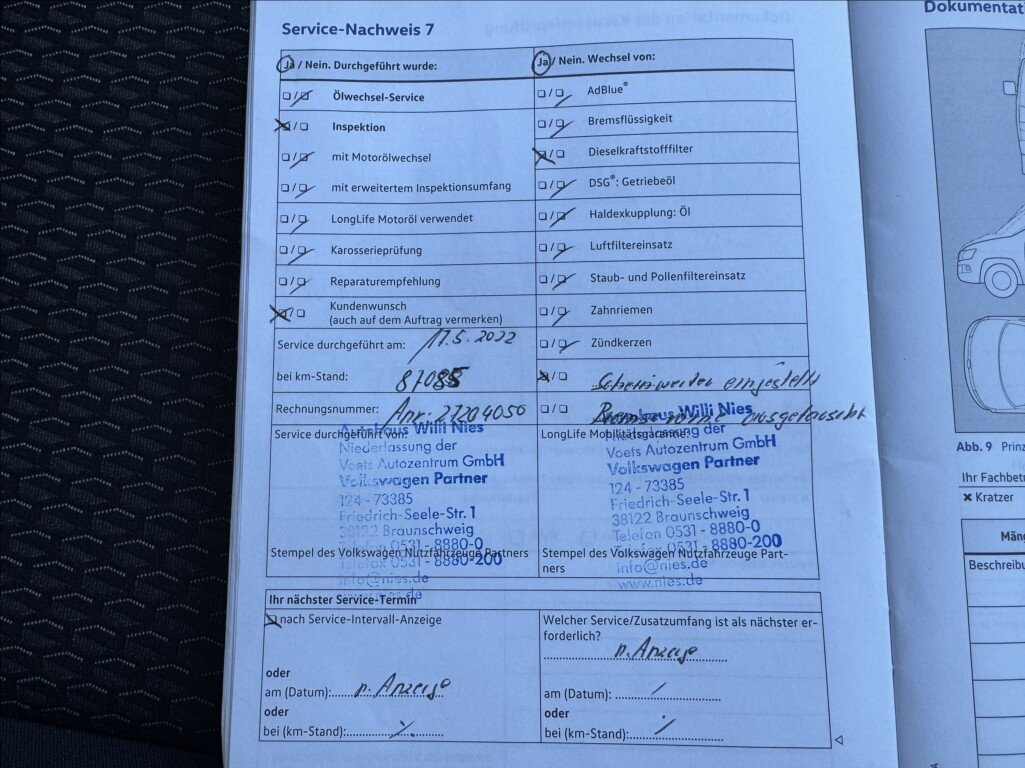 Service-Nachweis 7
Ja / Nein. Durchgeführt wurde:
Ölwechsel-Service
Inspektion
mit Motorölwechsel
mit erweitertem Inspektionsumfang
LongLife Motoröl verwendet
Karosserieprüfung
Reparaturempfehlung
Kundenwunsch
(auch auf dem Auftrag vermerken)
Service durchgeführt am: 17.5.2022
bei km-Stand: 87085
Rechnungsnummer: Anr: 21204050
Service durchgeführt von:
Autohaus Willi Nies
Niederlassung der
Voets Autozentrum GmbH
Volkswagen Partner
124 - 73385
Friedrich-Seele-Str. 1
38122 Braunschweig
Telefon 0531 - 8880-0
Telefax 0531 - 8880-200
info@nies.de
www.nies.de
Stempel des Volkswagen Nutzfahrzeuge Partners
Ja / Nein. Wechsel von:
AdBlue®
Bremsflüssigkeit
Dieselkraftstofffilter
DSG®: Getriebeöl
Haldexkupplung: Öl
Luftfiltereinsatz
Staub- und Pollenfiltereinsatz
Zahnriemen
Zündkerzen
Scheinwerfer eingestellt
ausgetauscht
LongLife Mobilitätsgarantie:
Autohaus Willi Nies
Niederlassung der
Voets Autozentrum GmbH
Volkswagen Partner
124 - 73385
Friedrich-Seele-Str. 1
38122 Braunschweig
Telefon 0531 - 8880-0
Telefax 0531 - 8880-200
info@nies.de
www.nies.de
Stempel des Volkswagen Nutzfahrzeuge Part-
ners
Ihr nächster Service-Termin
nach Service-Intervall-Anzeige
oder
am (Datum): n. Anzeige
oder
bei (km-Stand):
Welcher Service/Zusatzumfang ist als nächster er-
forderlich?
n. Anzeige
am (Datum):
oder
bei (km-Stand):
Dokumentat
Abb. 9 Prinz
Ihr Fachbetr
✖ Kratzer
Mäng
Beschreibu